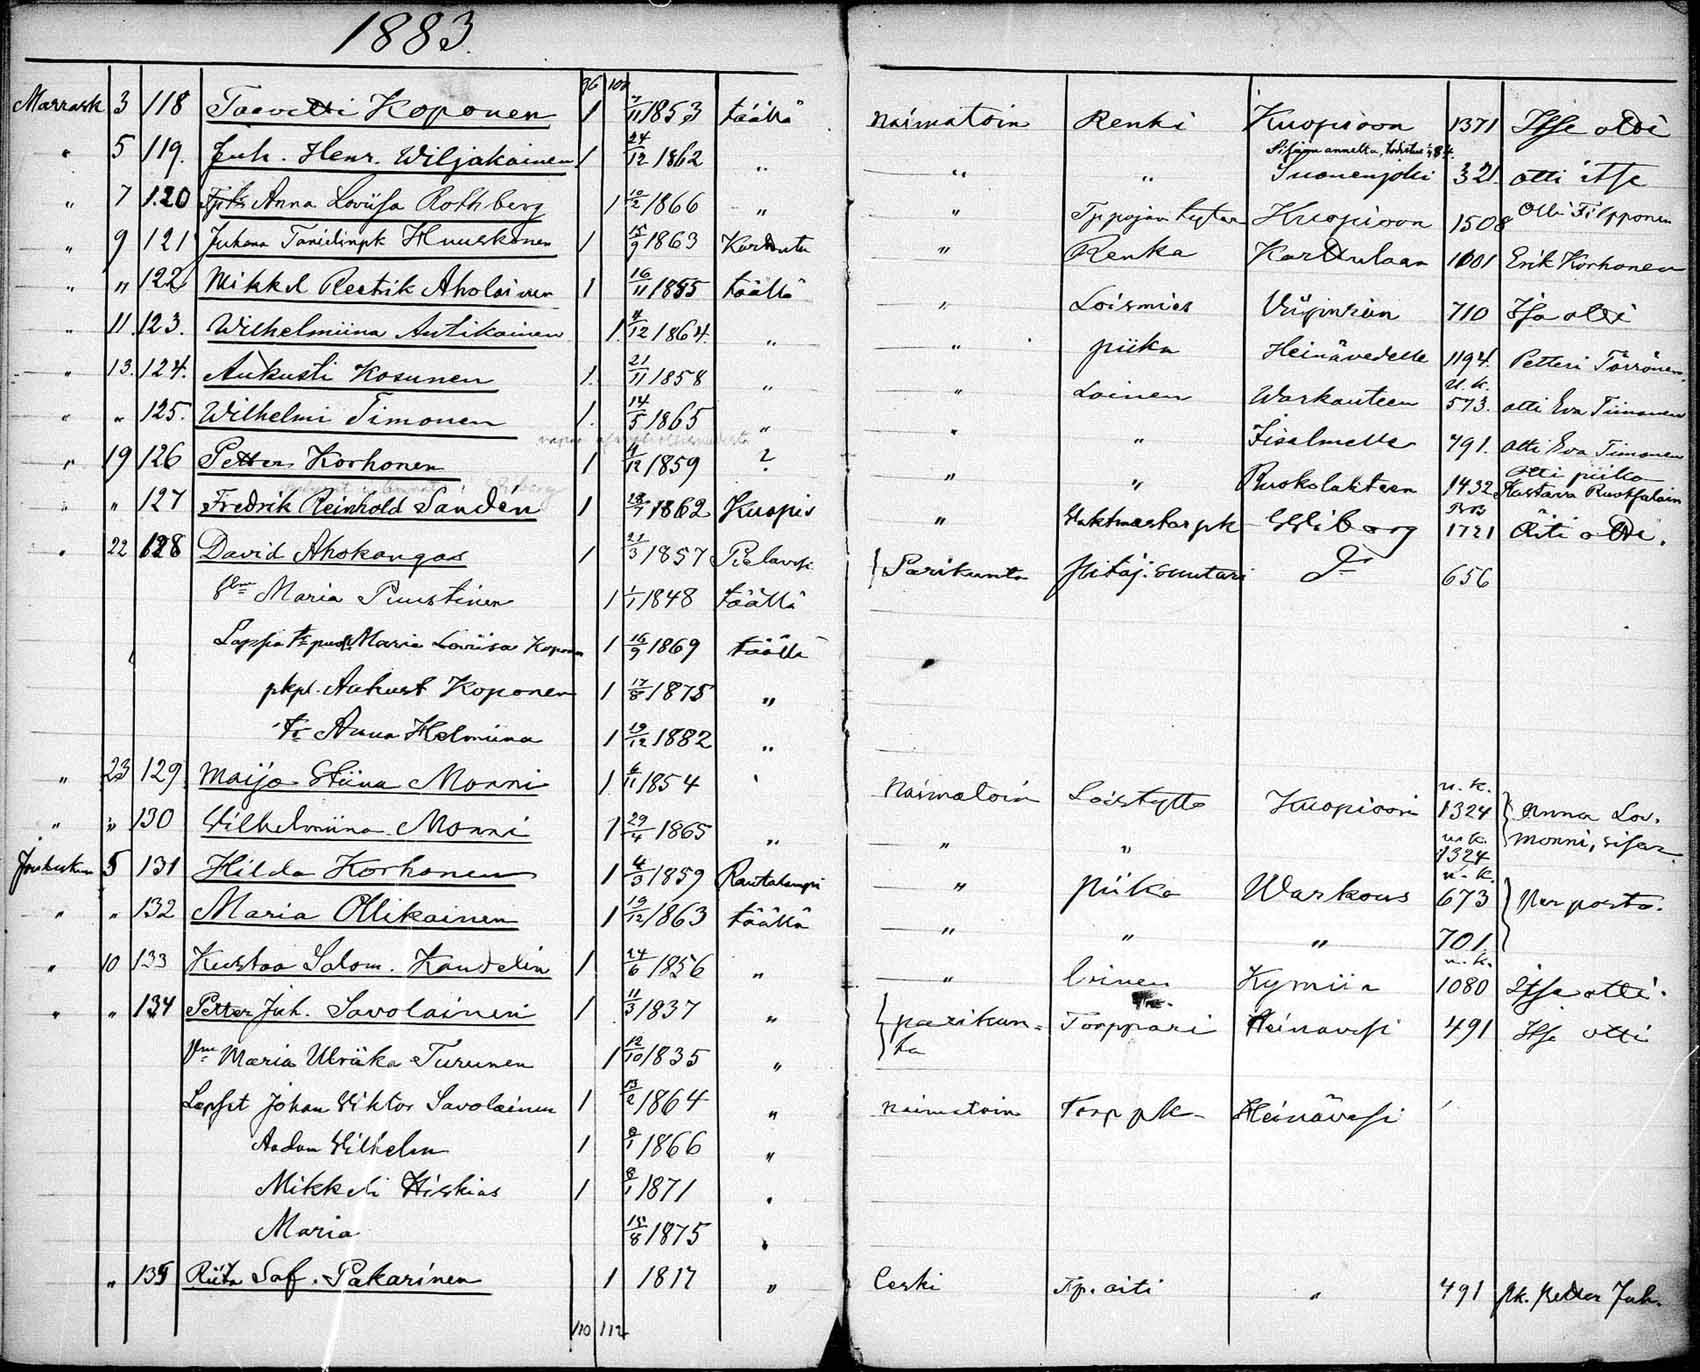 1883.
96 102
Marrask 3 118 Taavetti Koponen 1 7/11 1853 täällä Naimatoin Renki Kuopioon 1371 Itse otti
" 5 119. Juh. Henr. Wiljakainen 1 24/12 1862 " " " Suonenjoki 321. otti itse
" 7 120 Anna Loviisa Rothberg 1 10/2 1866 " " Kuopioon 1508 Olli Filpponen
" 9 121 Juhana Huuskonen 1 15/9 1863 " Renka Karttulaan 1001 Erik Korhonen
" " 122 Mikkel Reetrik Aholainen 1 16/11 1855 täällä " Loismies Viipuriin 710 Isä otti
" 11. 123. Wilhelmiina Antikainen 1. 4/12 1864. " " piika Heinävedelle 1194. Petteri Törrönen.
" 13. 124. Aukusti Kosunen 1. 21/11 1858 " " Loinen Warkauteen u.k. 573. otti Eva Tiimonen
" " 125. Wilhelmi Timonen 1. 14/5 1865 " " " Iisalmelle 791. otti Eva Timonen
" 19 126 Petter Korhonen 1 4/12 1859 ? " " Ruokolahteen 1432 Otti piika
" " 127 Fredrik Reinhold Sanden 1 1862 Kuopio " Wiborg 1721 Äiti otti.
" 22 128 David Ahokangas 1 21/3 1857 Pielavesi Parikunta Itäj. suutari D:o 656
Vmo Maria Puustinen 1 1/1 1848 täällä
Lapsia Maria Loviisa Koponen 1 16/9 1869 täällä
pkpl. Aukust Koponen 1 17/8 1875 "
tr Anna Helmiina 1 19/12 1882 "
" 23 129 Maija Stiina Monni 1 6/11 1854 " Naimatoin Loistyttö Kuopioon u.k. 1324 Anna Lov.
" " 130 Wilhelmiina Monni 1 29/4 1865 " " " u.k. 1324 Monni, sisar.
Joulukuu 5 131 Hilda Korhonen 1 4/3 1859 Rautalampi " piika Warkaus u.k. 673 Per posto.
" " 132 Maria Ollikainen 1 19/12 1863 täällä " " " 701.
" 10 133 Kustaa Salom. Kaudelin 1 24/6 1856 " " loinen Kymiin u.k. 1080 Itse otti.
" " 134 Petter Juh. Savolainen 1 11/3 1837 " parikun= Torppari Heinävesi 491 Itse otti
Vmo Maria Ulriika Turunen 1 12/10 1835 " ta
Lapset Johan Viktor Savolainen 1 13/2 1864 " naimatoin Torp pk- Heinävesi
Aadam Wilhelm 1 1866 "
Mikkeli Hiskias 1 1871 "
Maria 15/8 1875 "
" 135 Riita Sof. Pakarinen 1 1817 " Leski Tp. äiti " 491 pk. Petter Juh.
110 112